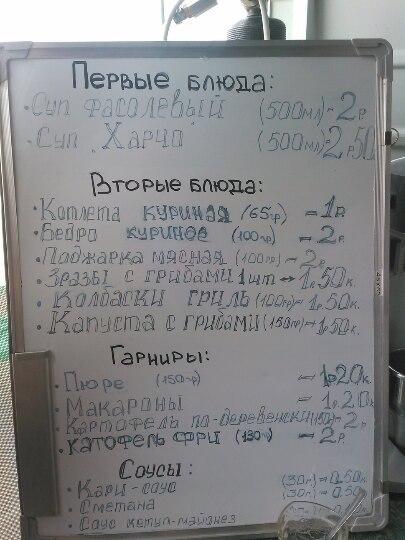 Первые блюда:
· Суп фасолевый (500мл) - 2р.
· Суп „Харчо" (500мл) - 2р.50
Вторые блюда:
· Котлета куриная (65гр) - 1р.
· Бедро куриное (100гр) - 2р.
· Поджарка мясная (100гр) - 2р.
· Зразы с грибами 1шт - 1р.50к.
· Колбаски гриль (100гр) - 1р.50к.
· Капуста с грибами (150гр) - 1р.50к.
Гарниры:
· Пюре (150гр) - 1р.20к.
· Макароны - 1р.20к.
· Картофель по-деревенски - 2р.
· Катофель фри (130гр) - 2р.
Соусы:
· Кари-соус (30г) - 0.50к
· Сметана (30г) - 0.50
· Соус кетчуп-майонез